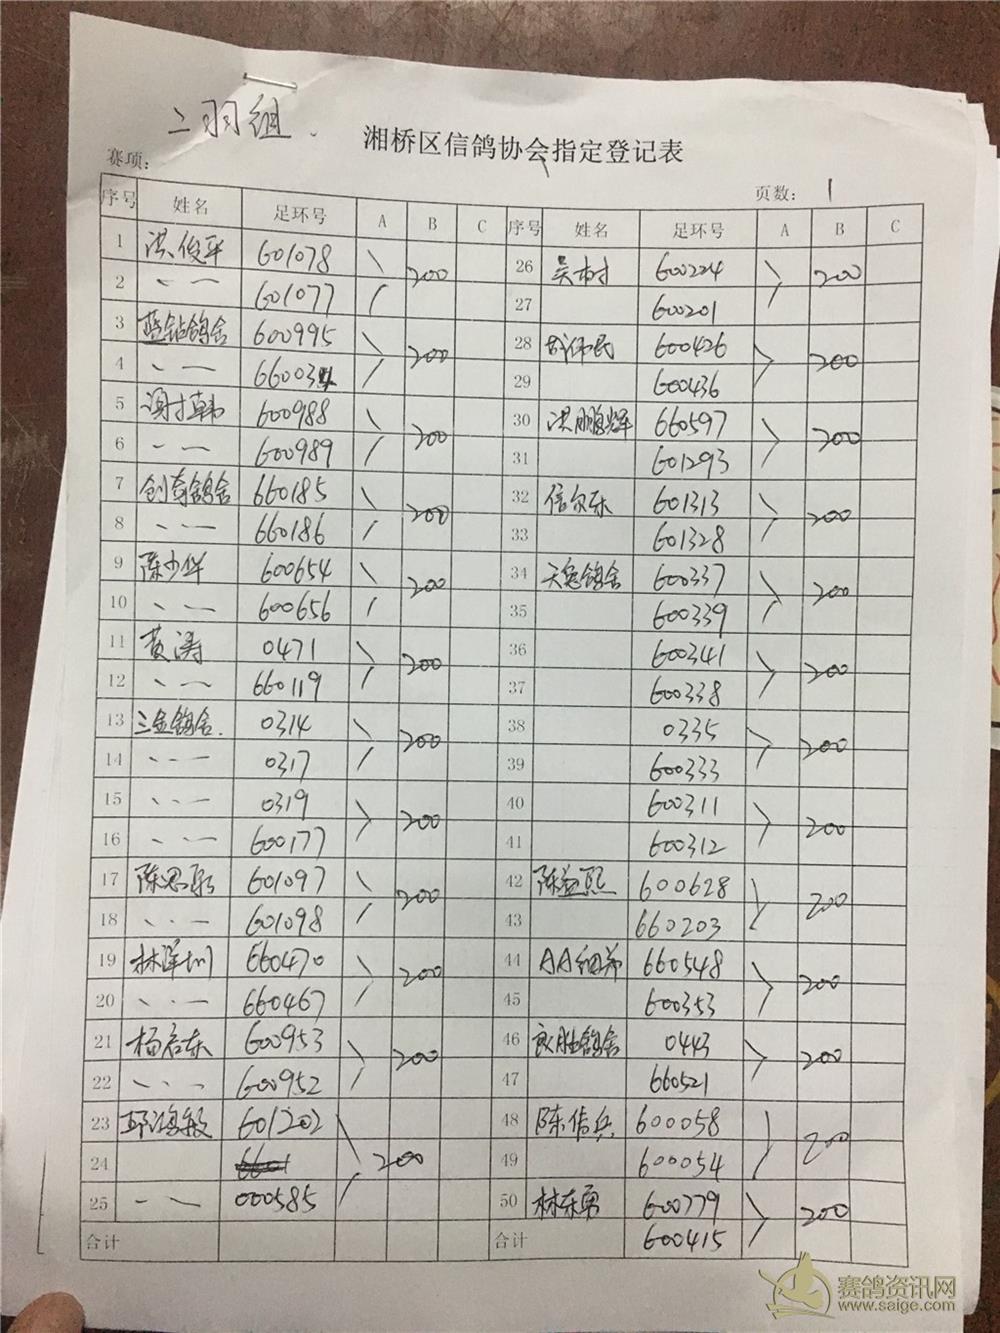 二羽组.
湘桥区信鸽协会指定登记表
赛项:
页数: 1
序号 姓名 足环号 A B C
1 洪俊平 601078
2 、、— 601077 200
3 蓝钻鸽舍 600995
4 、— 66003 200
5 谢才韩 600988
6 、— 600989 200
7 创奇鸽舍 660185
8 、、— 660186 200
9 陈少华 600654
10 、、— 600656 200
11 黄涛 0471
12 、— 660119 200
13 三金鸽舍. 0314
14 、、— 0317 200
15 、、— 0319
16 、、— 600177 200
17 陈思 601097
18 、、— 601098 200
19 林泽圳 660470
20 、、— 660467 200
21 杨启东 600953
22 、、、 600952 200
23 邱鸿毅 601202
24 200
25 — 、 000585
合计
序号 姓名 足环号 A B C
26 吴树 600224
27 600201 200
28 伟民 600426
29 600436 200
30 洪鹏辉 660597
31 601293 200
32 信尔乐 601313
33 601328 200
34 天逸鸽舍 600337
35 600339 200
36 600341
37 600338 200
38 0335
39 600333 200
40 600311
41 600312 200
42 陈益熙 600628
43 660203 200
44 AA细弟 660548
45 600353 200
46 良胜鸽舍 0443
47 660521 200
48 陈信兵 600058
49 600054 200
50 林东勇 600779
合计 600415 200
赛鸽资讯网
www.saige.com